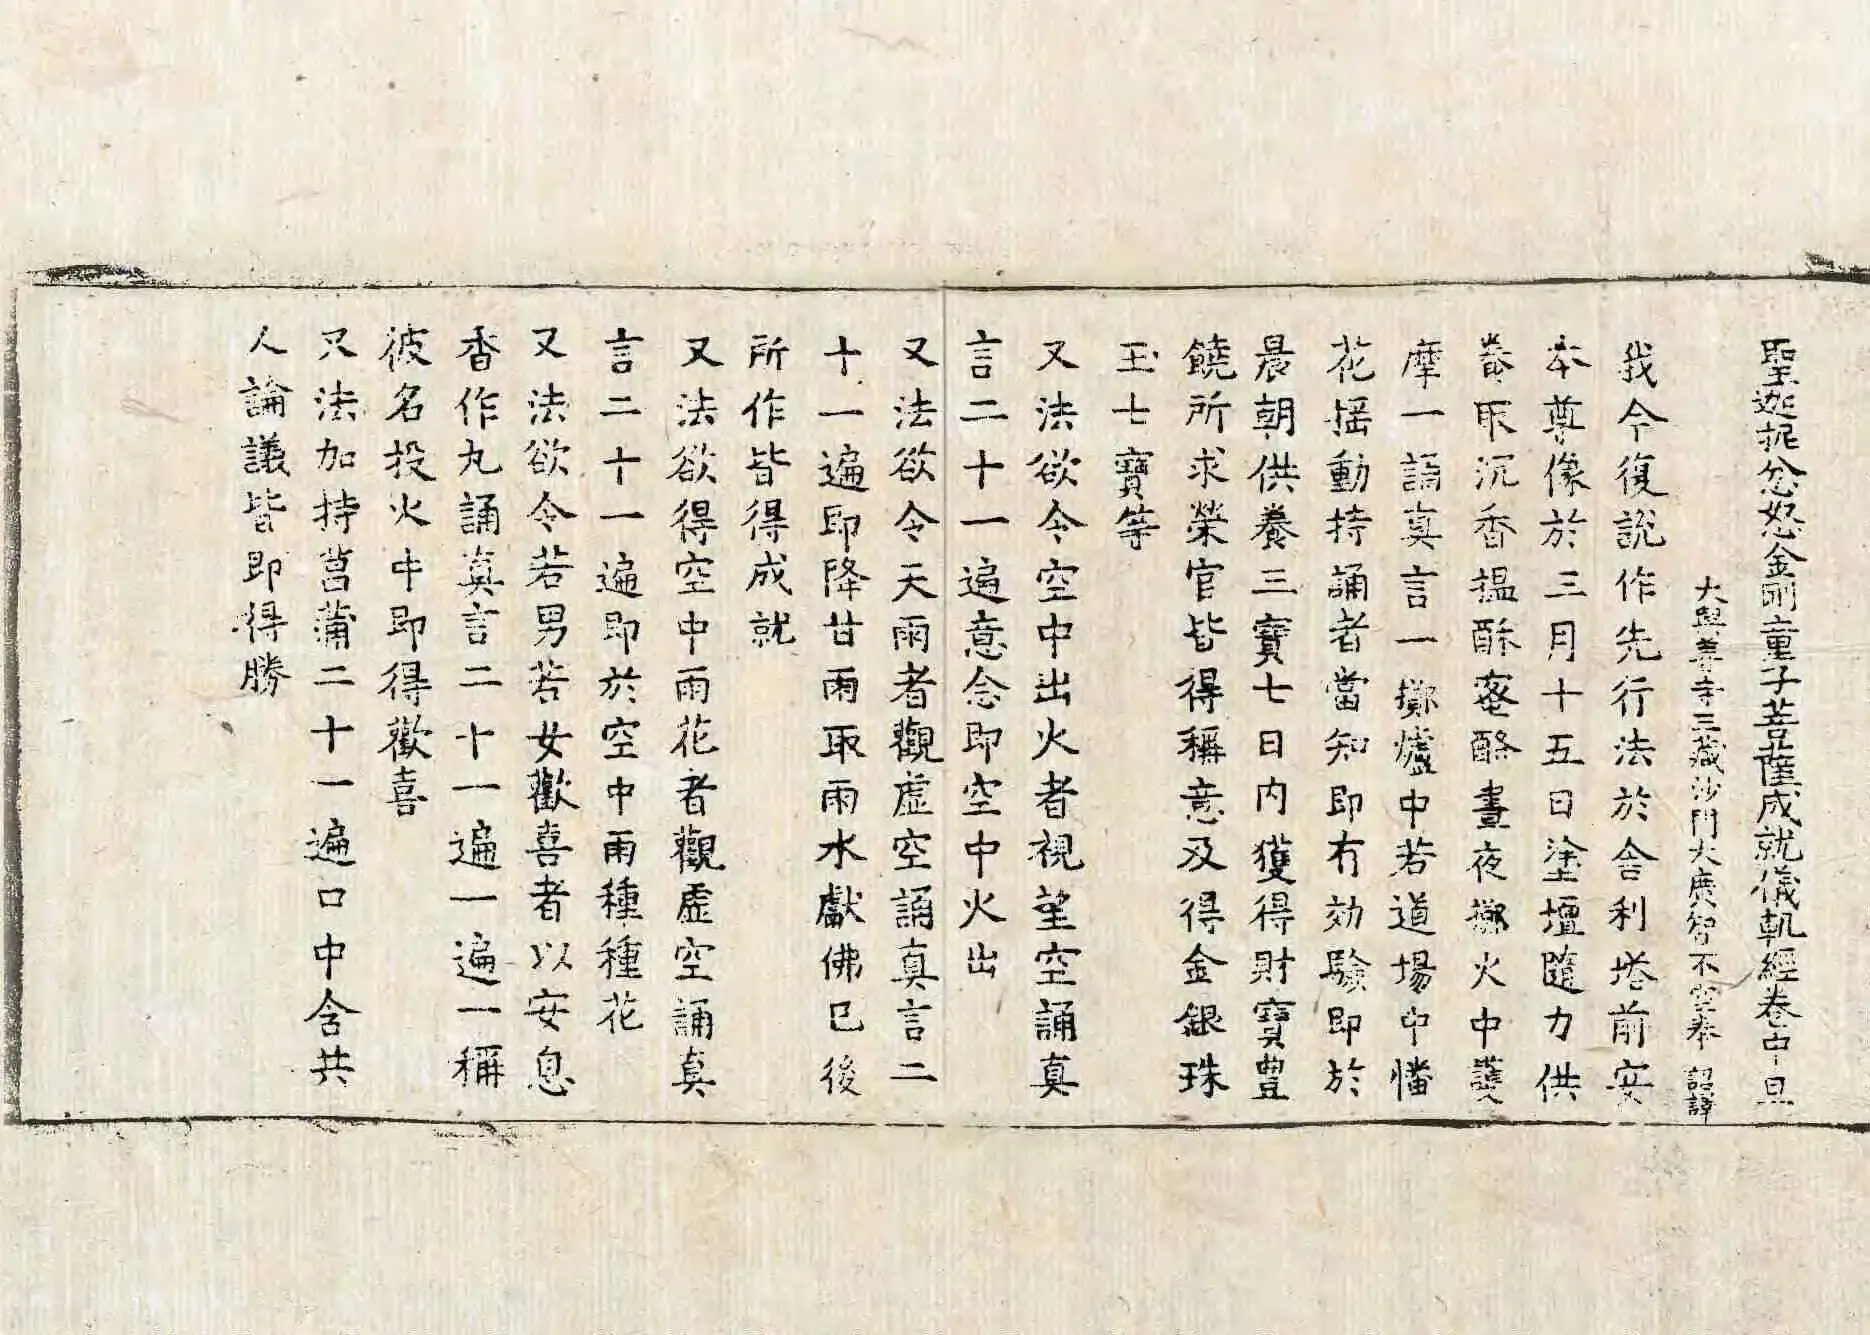 聖迦抳忿怒金剛童子菩薩成就儀軌經卷中旦
大興善寺三藏沙門大廣智不空奉 詔譯
我今復說作先行法於舍利塔前安
本尊像於三月十五日塗壇隨力供
養取沉香搵酥蜜酪晝夜擲火中護
摩一誦真言一擲爐中若道場中幡
花搖動持誦者當知即有効驗即於
晨朝供養三寶七日內獲得財寶豊
饒所求榮官皆得稱意及得金銀珠
玉七寶等
又法欲令空中出火者視望空誦真
言二十一遍意念即空中火出
又法欲令天雨者觀虛空誦真言二
十一遍即降甘雨取雨水獻佛已後
所作皆得成就
又法欲得空中雨花者觀虛空誦真
言二十一遍即於空中雨種種花
又法欲令若男若女歡喜者以安息
香作丸誦真言二十一遍一遍一稱
彼名投火中即得歡喜
又法加持菖蒲二十一遍口中含共
人論議皆即得勝